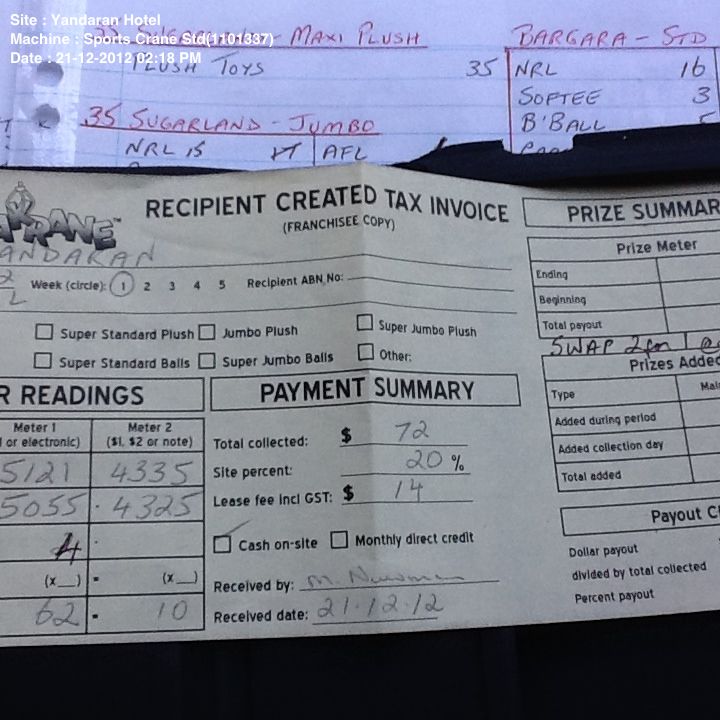 Site : Yandaran Hotel
Machine : Sports Crane Std(1101337)
Date : 21-12-2012 02:18 PM
35 SUGARLAND - MAXI PLUSH
PLUSH TOYS 35
35 SUGARLAND - JUMBO
NRL 15 AFL
BARGARA - STD
NRL 16
SOFTEE 3
B'BALL
RECIPIENT CREATED TAX INVOICE
(FRANCHISEE COPY)
KRANE™
ANDARAN
Week (circle): 1 2 3 4 5 Recipient ABN No:
Super Standard Plush Jumbo Plush Super Jumbo Plush
Super Standard Balls Super Jumbo Balls Other:
R READINGS
Meter 1 Meter 2
or electronic) ($1, $2 or note)
5121 4335
5055 4325
4
(x__) = (x__)
62 = 10
PAYMENT SUMMARY
Total collected: $ 72
Site percent: 20 %
Lease fee incl GST: $ 14
Cash on-site Monthly direct credit
Received by: M. Newman
Received date: 21.12.12
PRIZE SUMMAR
Prize Meter
Ending
Beginning
Total payout
SWAP 2pm
Prizes Added
Type Mai
Added during period
Added collection day
Total added
Payout C
Dollar payout
divided by total collected
Percent payout